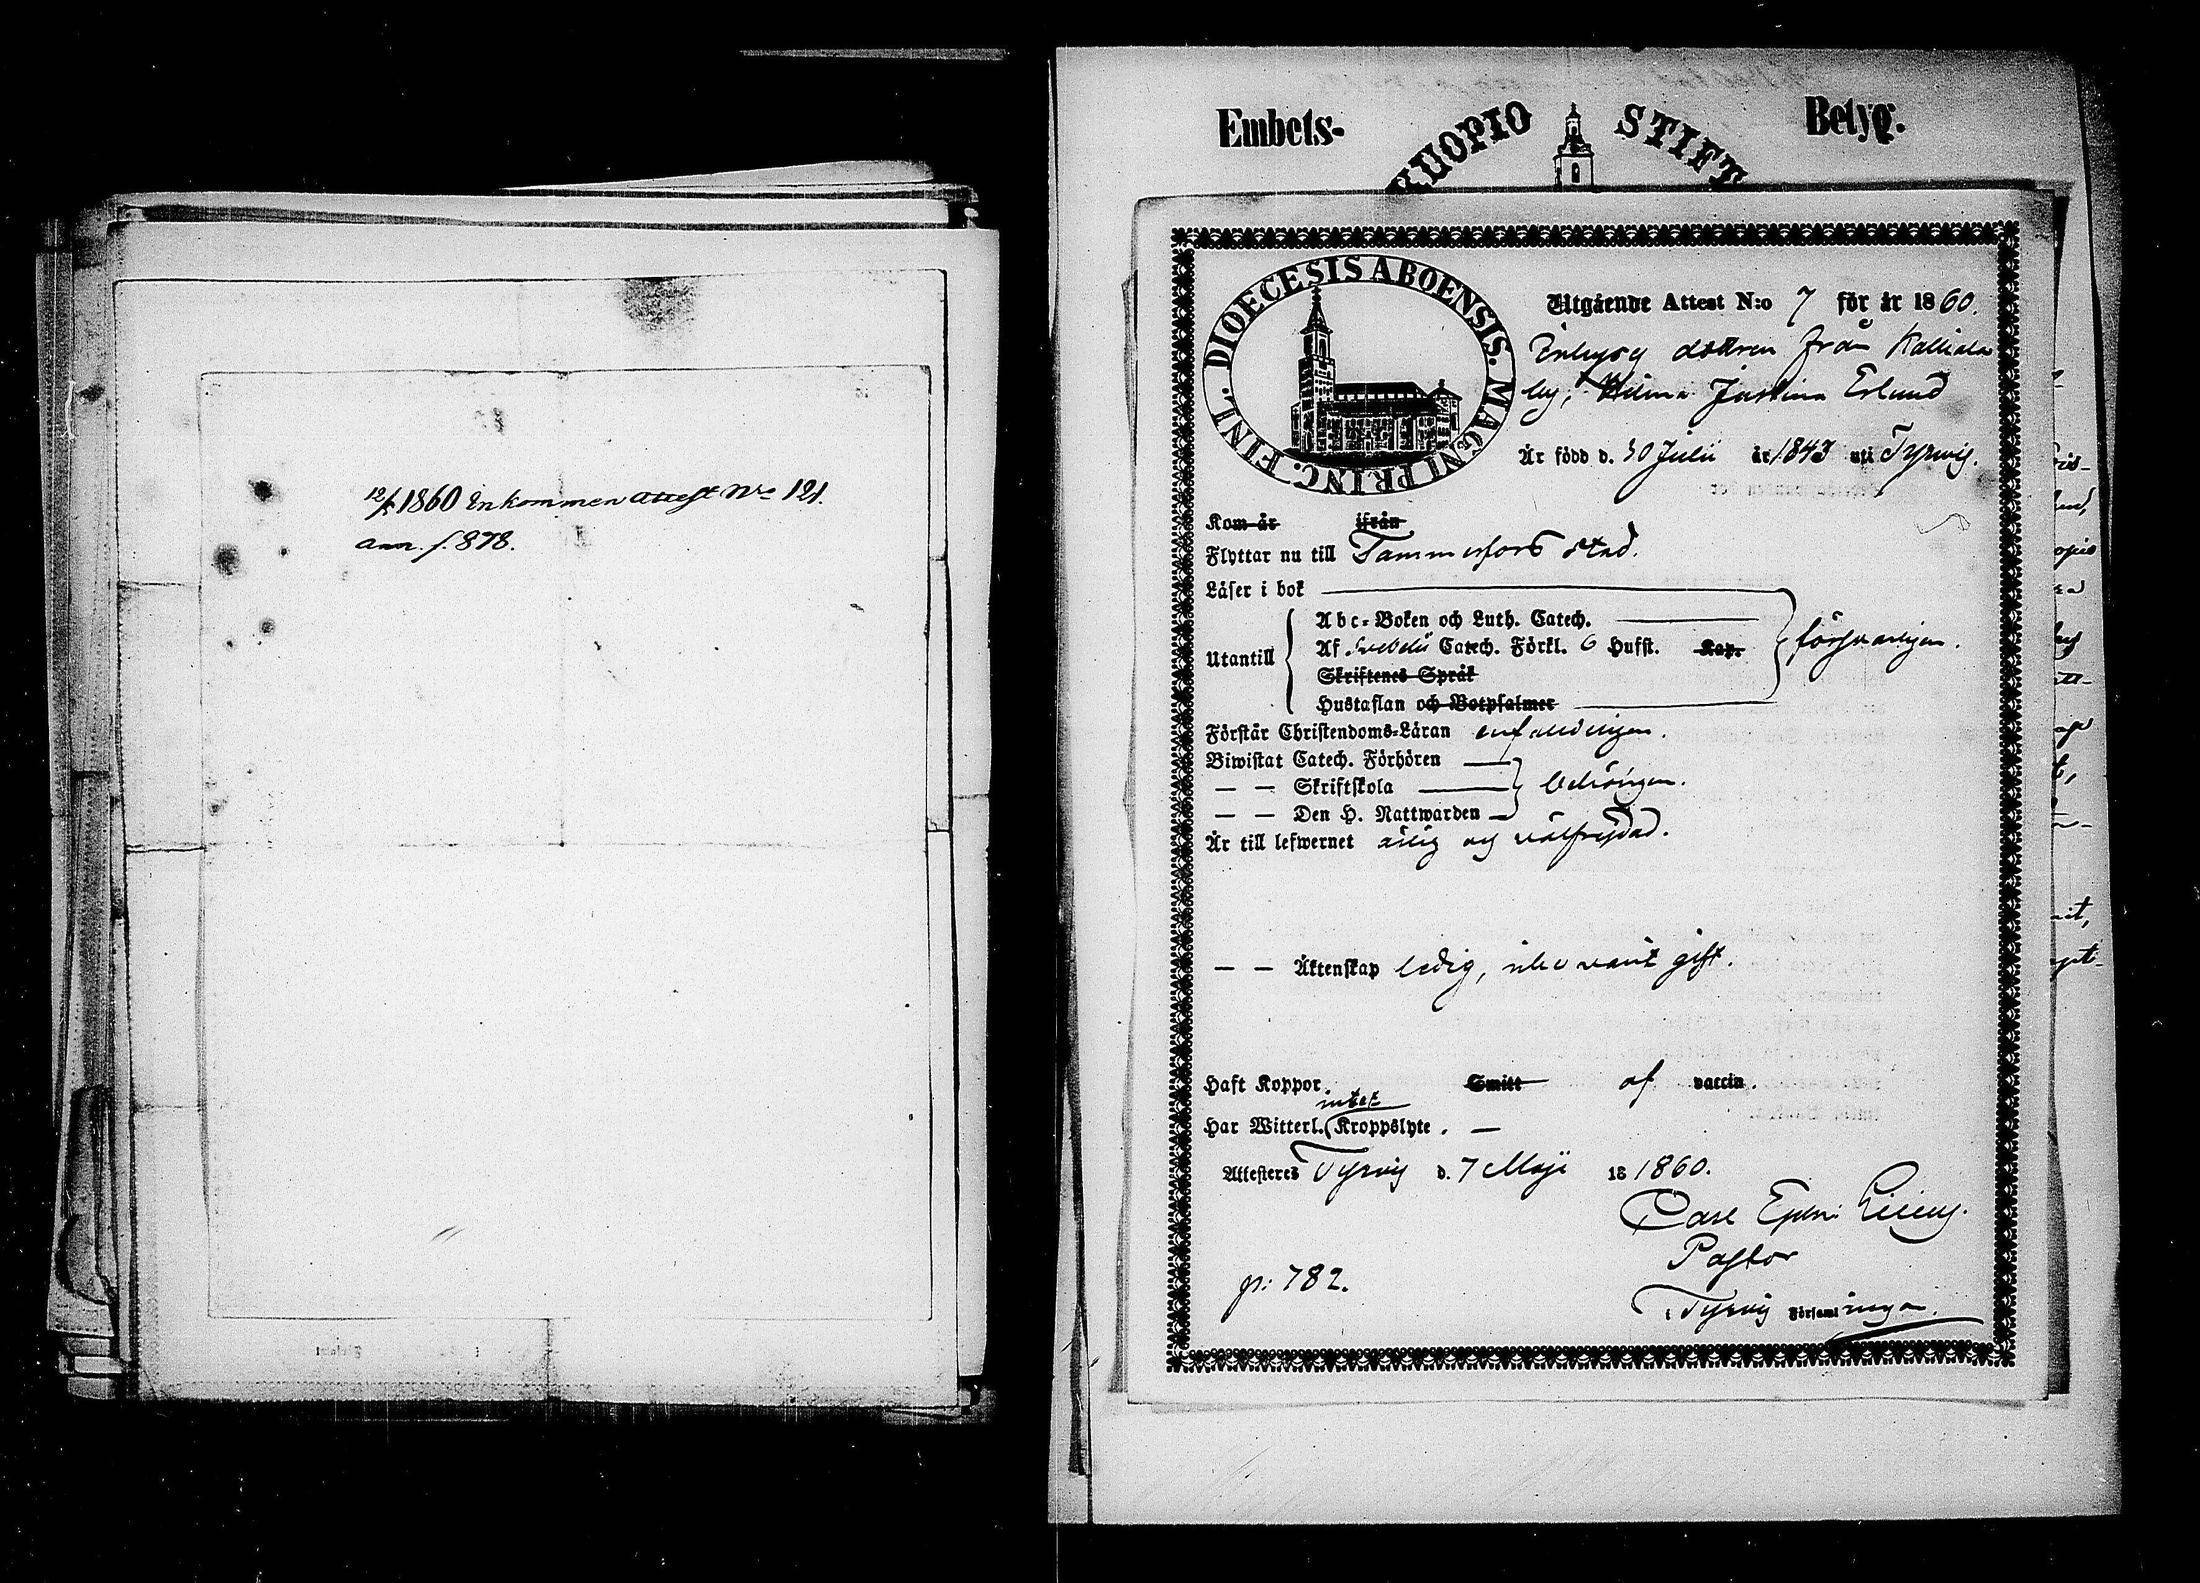 12/5 1860 Inkommen attest No 121.
ann. f. 878.
Embets- KUOPIO STIFT Betyg.
DIOECESIS ABOENSIS. MAGNI PRINC. FINL.
Utgående Attest N:o 7 för år 1860.
dottren från Kalliala
by, Wilma Justina Erlund
Är född d. 30 Julii år 1843 uti Tyrvis.
Kom år ifrån
Flyttar nu till Tammerfors stad.
Läser i bok
Utantill
Abc-Boken och Luth. Catech.
Af Svebelii Catech. Förkl. 6 Hufst. Kap.
försvarligen.
Skriftenes Språk
Hustaflan och Botpsalmer
Förstår Christendoms-Läran enfaldeligen.
Biwistat Catech. Förhören
— — Skriftskola behörigen.
— — Den H. Nattwarden
Är till lefwernet ärlig och välfrejdad.
— — Äktenskap ledig, icke varit gift.
Haft Koppor Smitt af vaccin.
intet
Har Witterl. Kroppslyte. —
Attesteras Tyrvis d. 7 Maji 18 1860.
Carl
Pastor
p: 782.
i Tyrvis Församlingen.